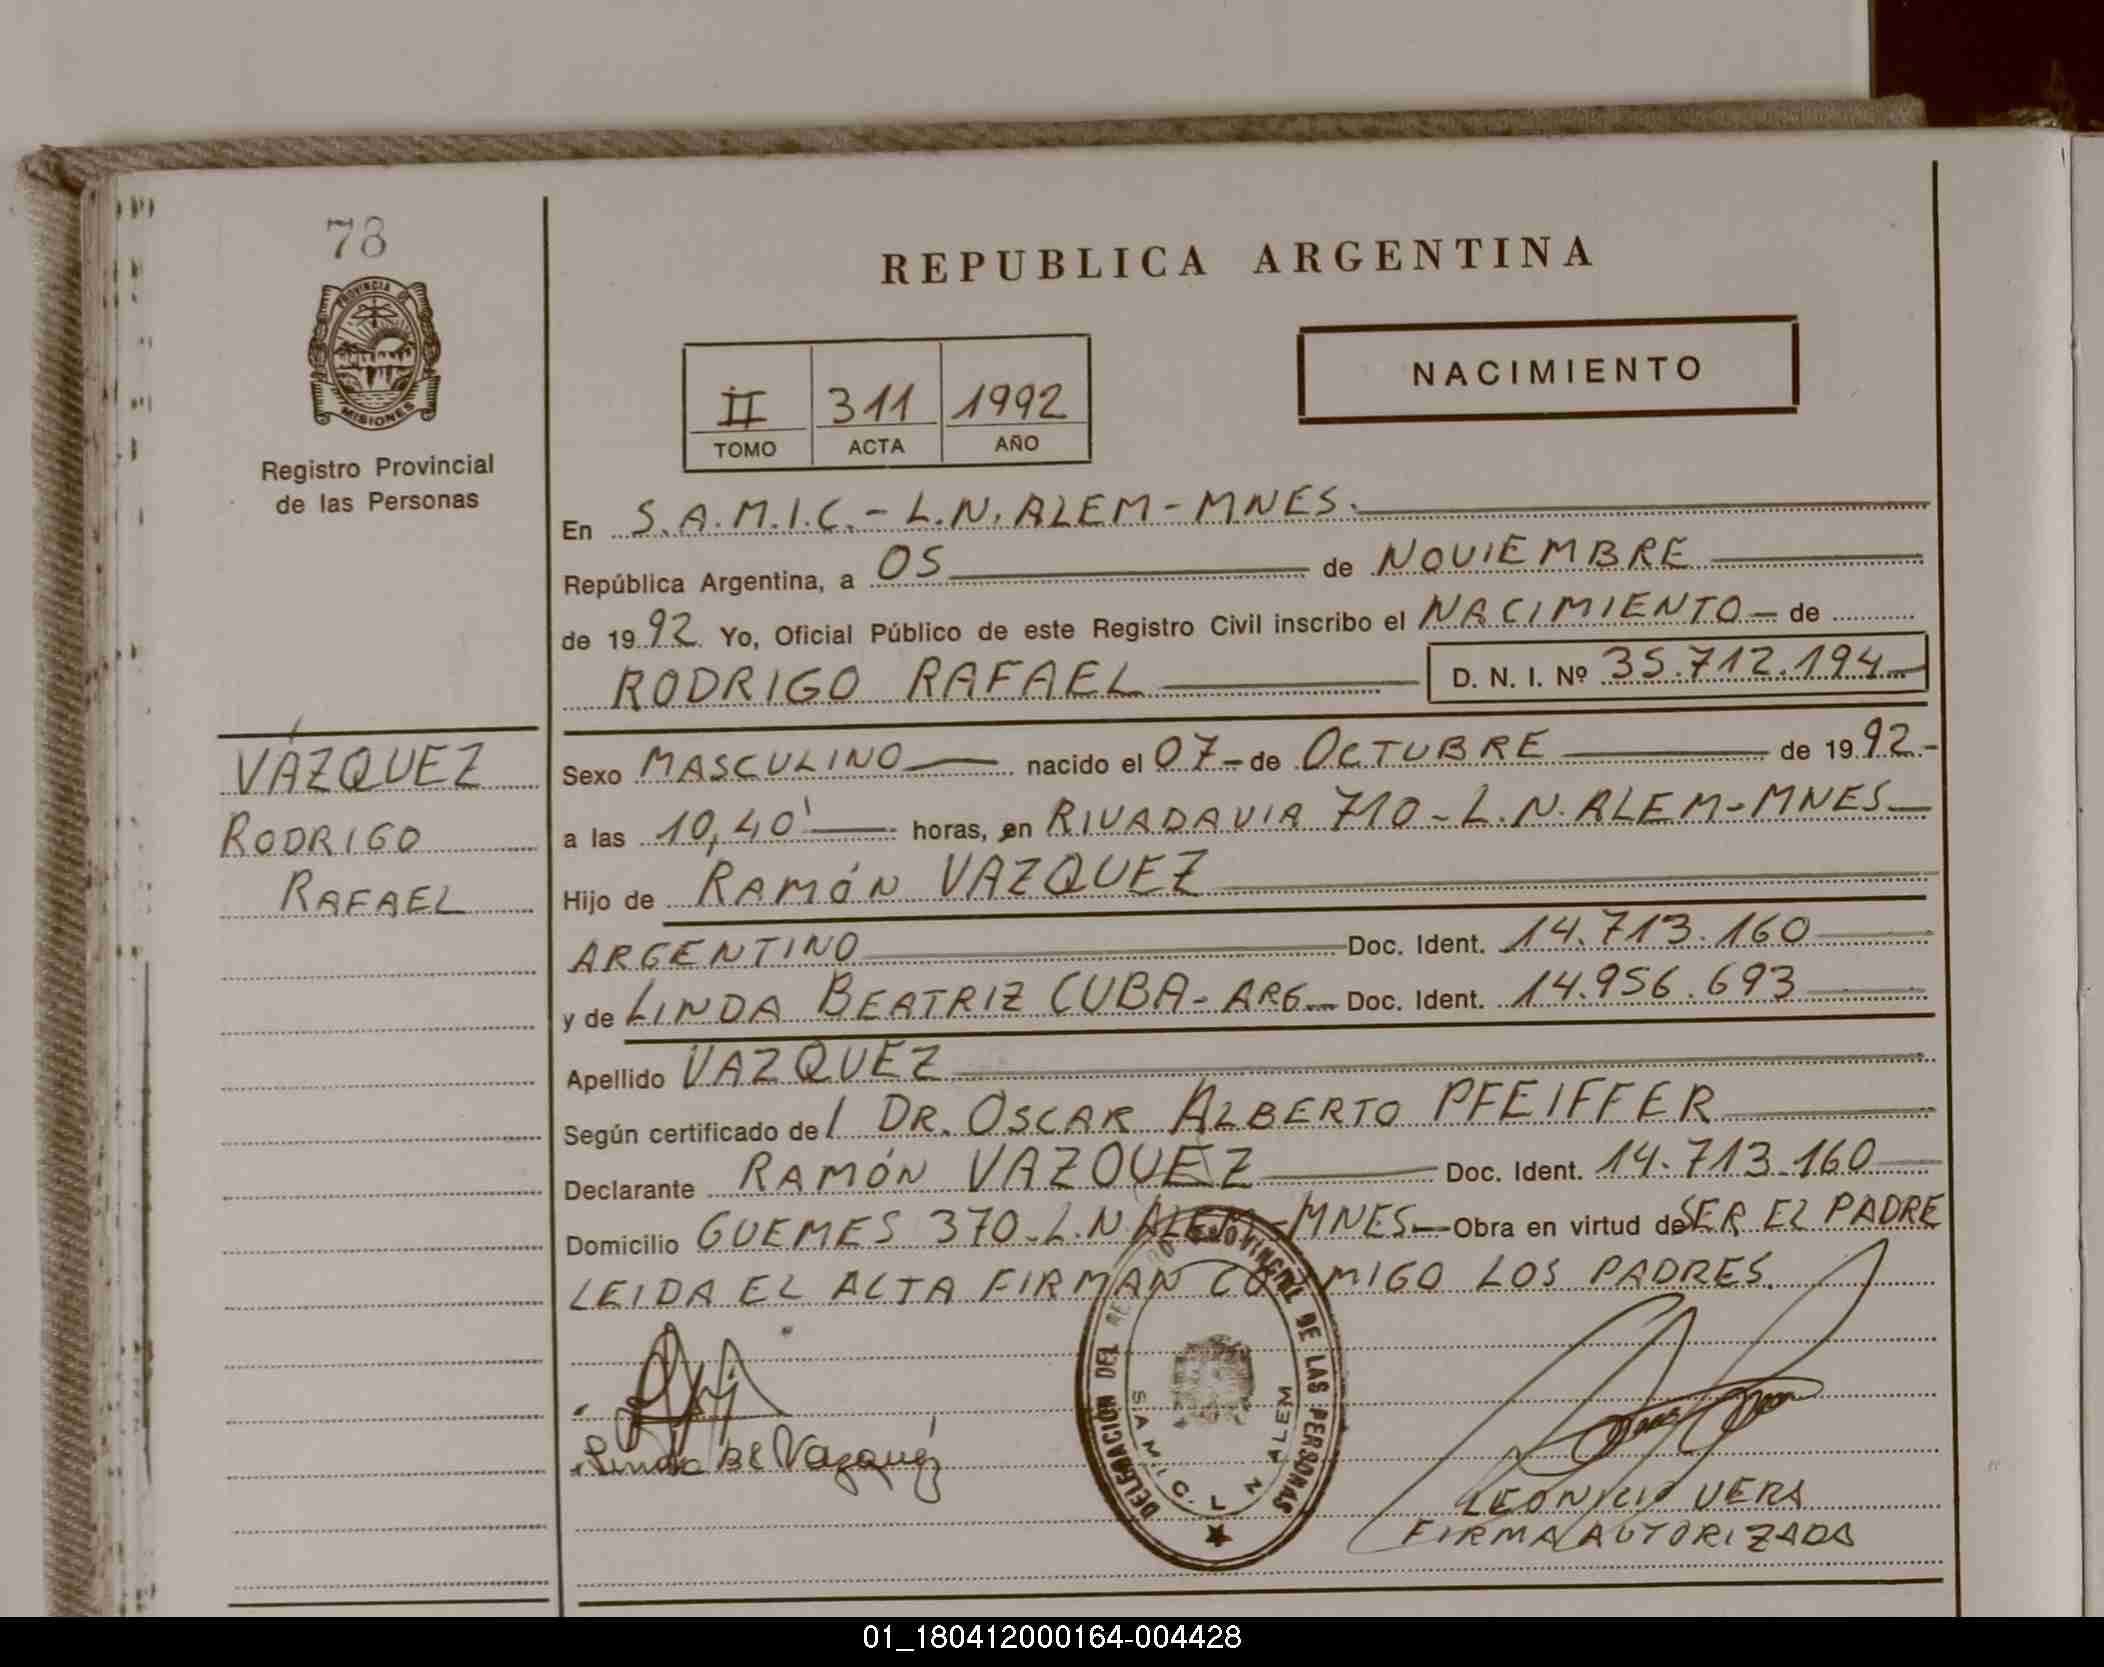 78
PROVINCIA DE
MISIONES
Registro Provincial
de las Personas
REPUBLICA ARGENTINA
II 311 1992
TOMO ACTA AÑO
NACIMIENTO
En S.A.M.I.C.- L.N. ALEM - MNES.
República Argentina, a 05 de NOVIEMBRE
de 1992 Yo, Oficial Público de este Registro Civil inscribo el NACIMIENTO - de
RODRIGO RAFAEL D. N. I. Nº 35.712.194
VÁZQUEZ
RODRIGO
RAFAEL
Sexo MASCULINO nacido el 07 - de OCTUBRE de 1992.-
a las 10,40' horas, en RIVADAVIA 710 - L.N. ALEM - MNES
Hijo de RAMÓN VAZQUEZ
ARGENTINO Doc. Ident. 14.713.160
y de LINDA BEATRIZ CUBA - ARG. Doc. Ident. 14.956.693
Apellido VAZQUEZ
Según certificado de/ DR. OSCAR ALBERTO PFEIFFER
Declarante RAMÓN VAZQUEZ Doc. Ident. 14.713.160
Domicilio GUEMES 370 - L.N ALEM - MNES Obra en virtud de SER EL PADRE
LEIDA EL ACTA FIRMAN CONMIGO LOS PADRES.
DELEGACION DEL REGISTRO PROVINCIAL DE LAS PERSONAS
S.A.M.I.C. L N ALEM
Linda B C Vazquez
LEONICIO VERA
FIRMA AUTORIZADA
01_180412000164-004428